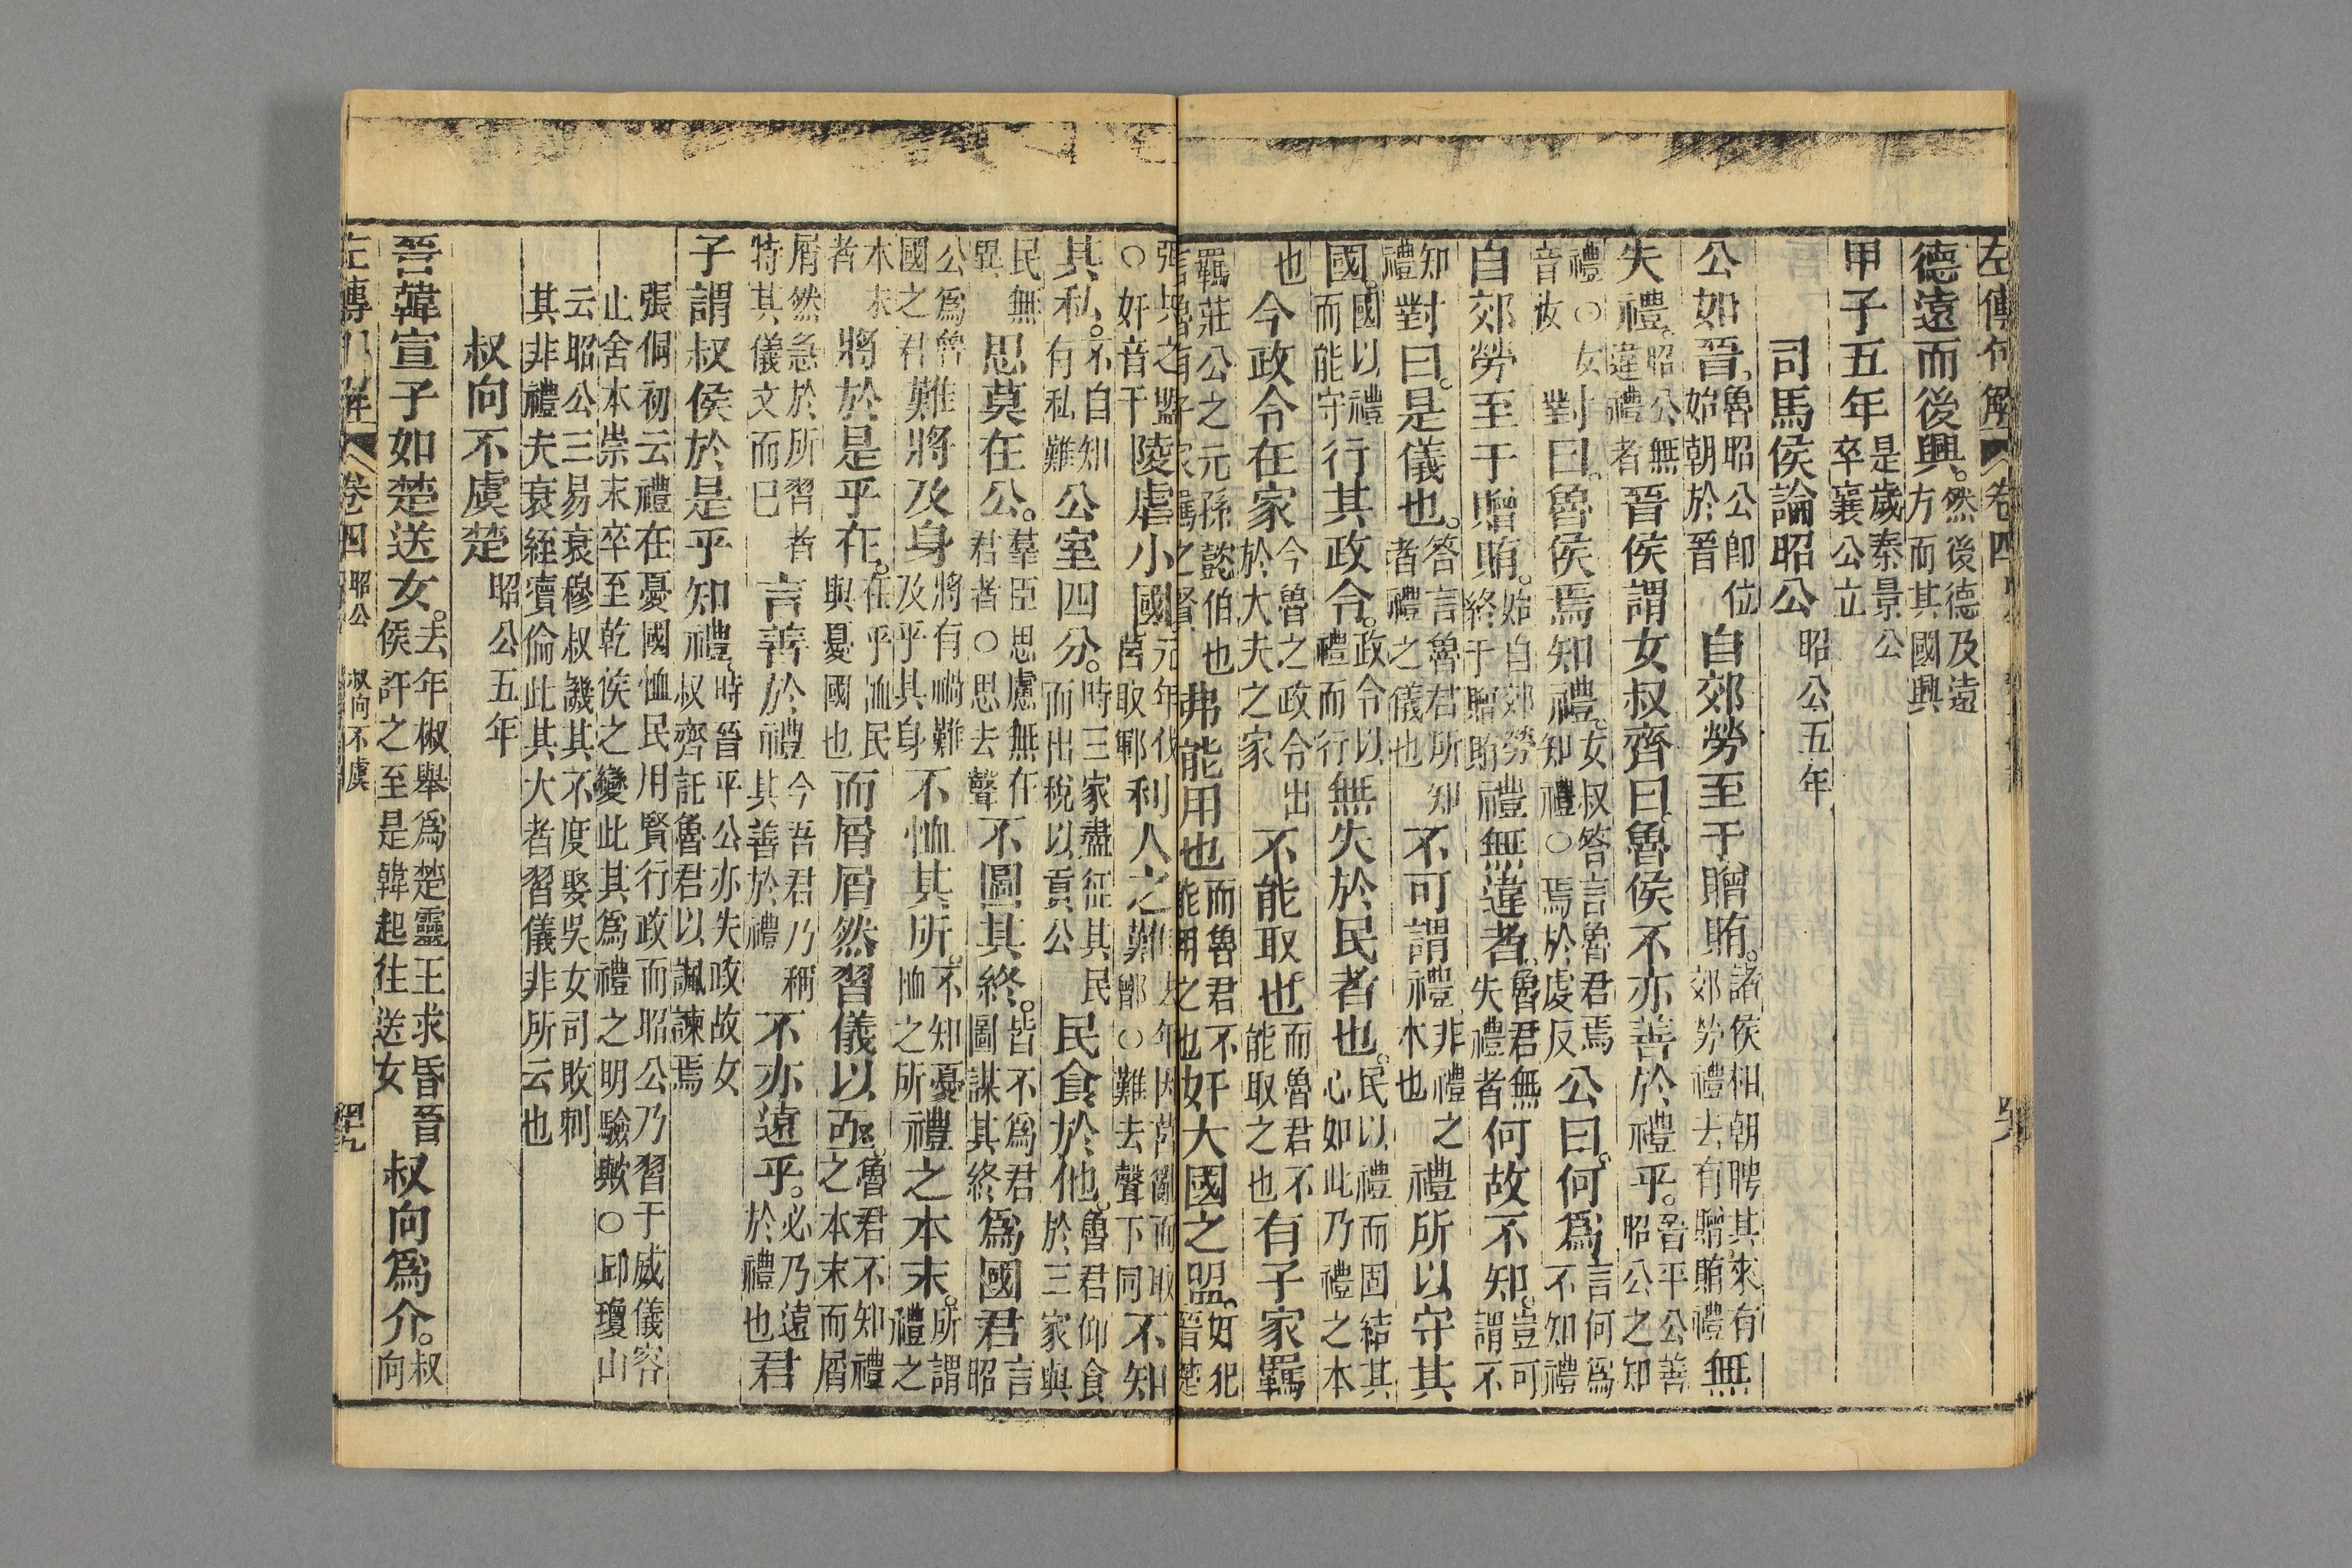 左傳句解 卷四
德遠而後興。然後德及遠方而其國興
甲子五年 是歲秦景公卒襄公立
司馬侯論昭公 昭公五年
公如晉。魯昭公卽位始朝於晉 自郊勞至于贈賄。諸侯相朝聘其來有郊勞禮去有贈賄禮 無
失禮。昭公無違禮者 晉侯謂女叔齊曰魯侯不亦善於禮乎。晉平公善昭公之知
禮○女音汝 對曰。魯侯焉知禮。女叔答言魯君焉知禮○焉於虔反 公曰。何爲 言何爲不知禮
自郊勞至于贈賄。始自郊勞終于贈賄 禮無違者。魯君無失禮者 何故不知。豈可謂不
知禮 對曰。是儀也。答言魯君所知者禮之儀也 不可謂禮 非禮之本也 禮所以守其
國。國以禮而能守 行其政令。政令以禮而行 無失於民者也。民以禮而固結其心如此乃禮之本
也 今政令在家 今魯之政令出於大夫之家 不能取也。而魯君不能取之也 有子家羈
羈莊公之元孫懿伯也言魯有子家羈之賢 弗能用也 而魯君不能用之也 奸大國之盟。奸犯晉楚
弭兵之盟○奸音干 陵虐小國 元年伐莒取鄆 利人之難 去年因莒亂而取鄫○難去聲下同 不知
其私。不自知有私難 公室四分。時三家盡征其民而出稅以貢公 民食於他。魯君仰食於三家與
民無異 思莫在公。羣臣思慮無在君者○思去聲 不圖其終。皆不爲君圖謀其終 爲國君 言昭
公爲魯國之君 難將及身 將有禍難及乎其身 不恤其所。不知憂恤之所 禮之本末。所謂禮之
本末者 將於是乎在。在乎恤民與憂國也 而屑屑然習儀以亟。魯君不知禮之本末而屑
屑然急於所習者特其儀文而已 言善於禮 今吾君乃稱其善於禮 不亦遠乎。必乃遠於禮也 君
子謂叔侯於是乎知禮。時晉平公亦失政故女叔齊託魯君以諷諫焉
張侗初云禮在憂國恤民用賢行政而昭公乃習于威儀容
止舍本崇末卒至乾侯之變此其爲禮之明驗歟○邱瓊山
云昭公三易衰穆叔譏其不度娶吳女司敗刺
其非禮夫衰絰瀆倫此其大者習儀非所云也
叔向不虞楚 昭公五年
晉韓宣子如楚送女。去年椒舉爲楚靈王求昏晉侯許之至是韓起往送女 叔向爲介。叔向
左傳句解 卷四 昭公 叔向不虞 四十九